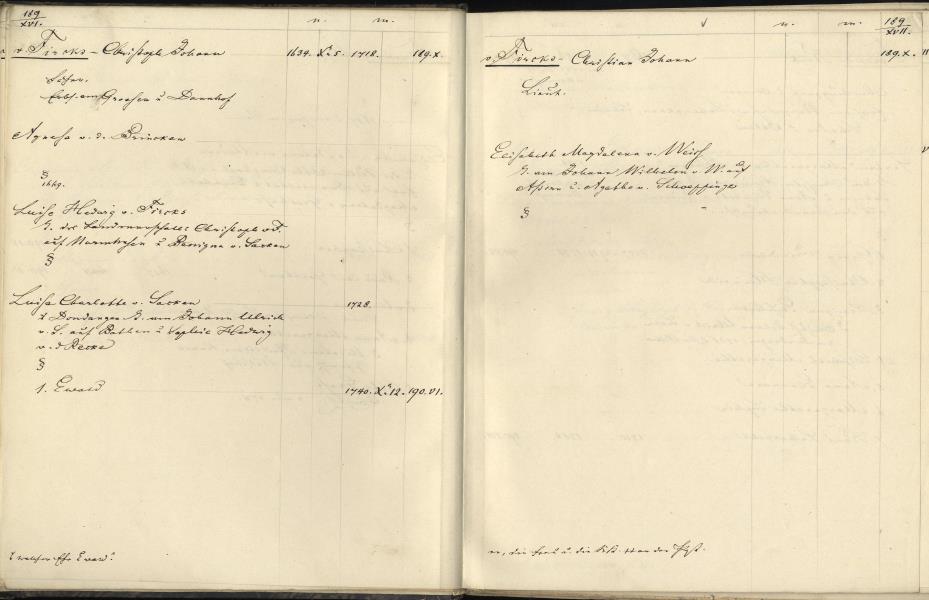 189
XVI.
n. m.
v Fircks - Christoph Johann 1639. X. 5. 1718. 189.X.
Erbh. am Groesen u Dannhof
Agnesa v. d. Brincken
§
1669.
Luise Hedwig v. Fircks
T. des Landmarschalls Christoph v F.
auf Nurmhusen u Benigna v. Sacken
§
Luise Charlotte v. Sacken 1728.
a Dondangen T. am Johann Ulrich
v. S. auf Bathen u Sophie Hedwig
v. d Recke
§
1. Ewald 1740. X. 12. 190.VI.
welcher Ehe Ewald?
189
XVII.
n. m.
v. Fircks - Christian Johann 189.X.
Lieut.
Elisabeth Magdalena v. Weiss
T. am Johann Wilhelm v W. auf
Assern u. Agathe v. Schoeppinge
§
die Frau u. die